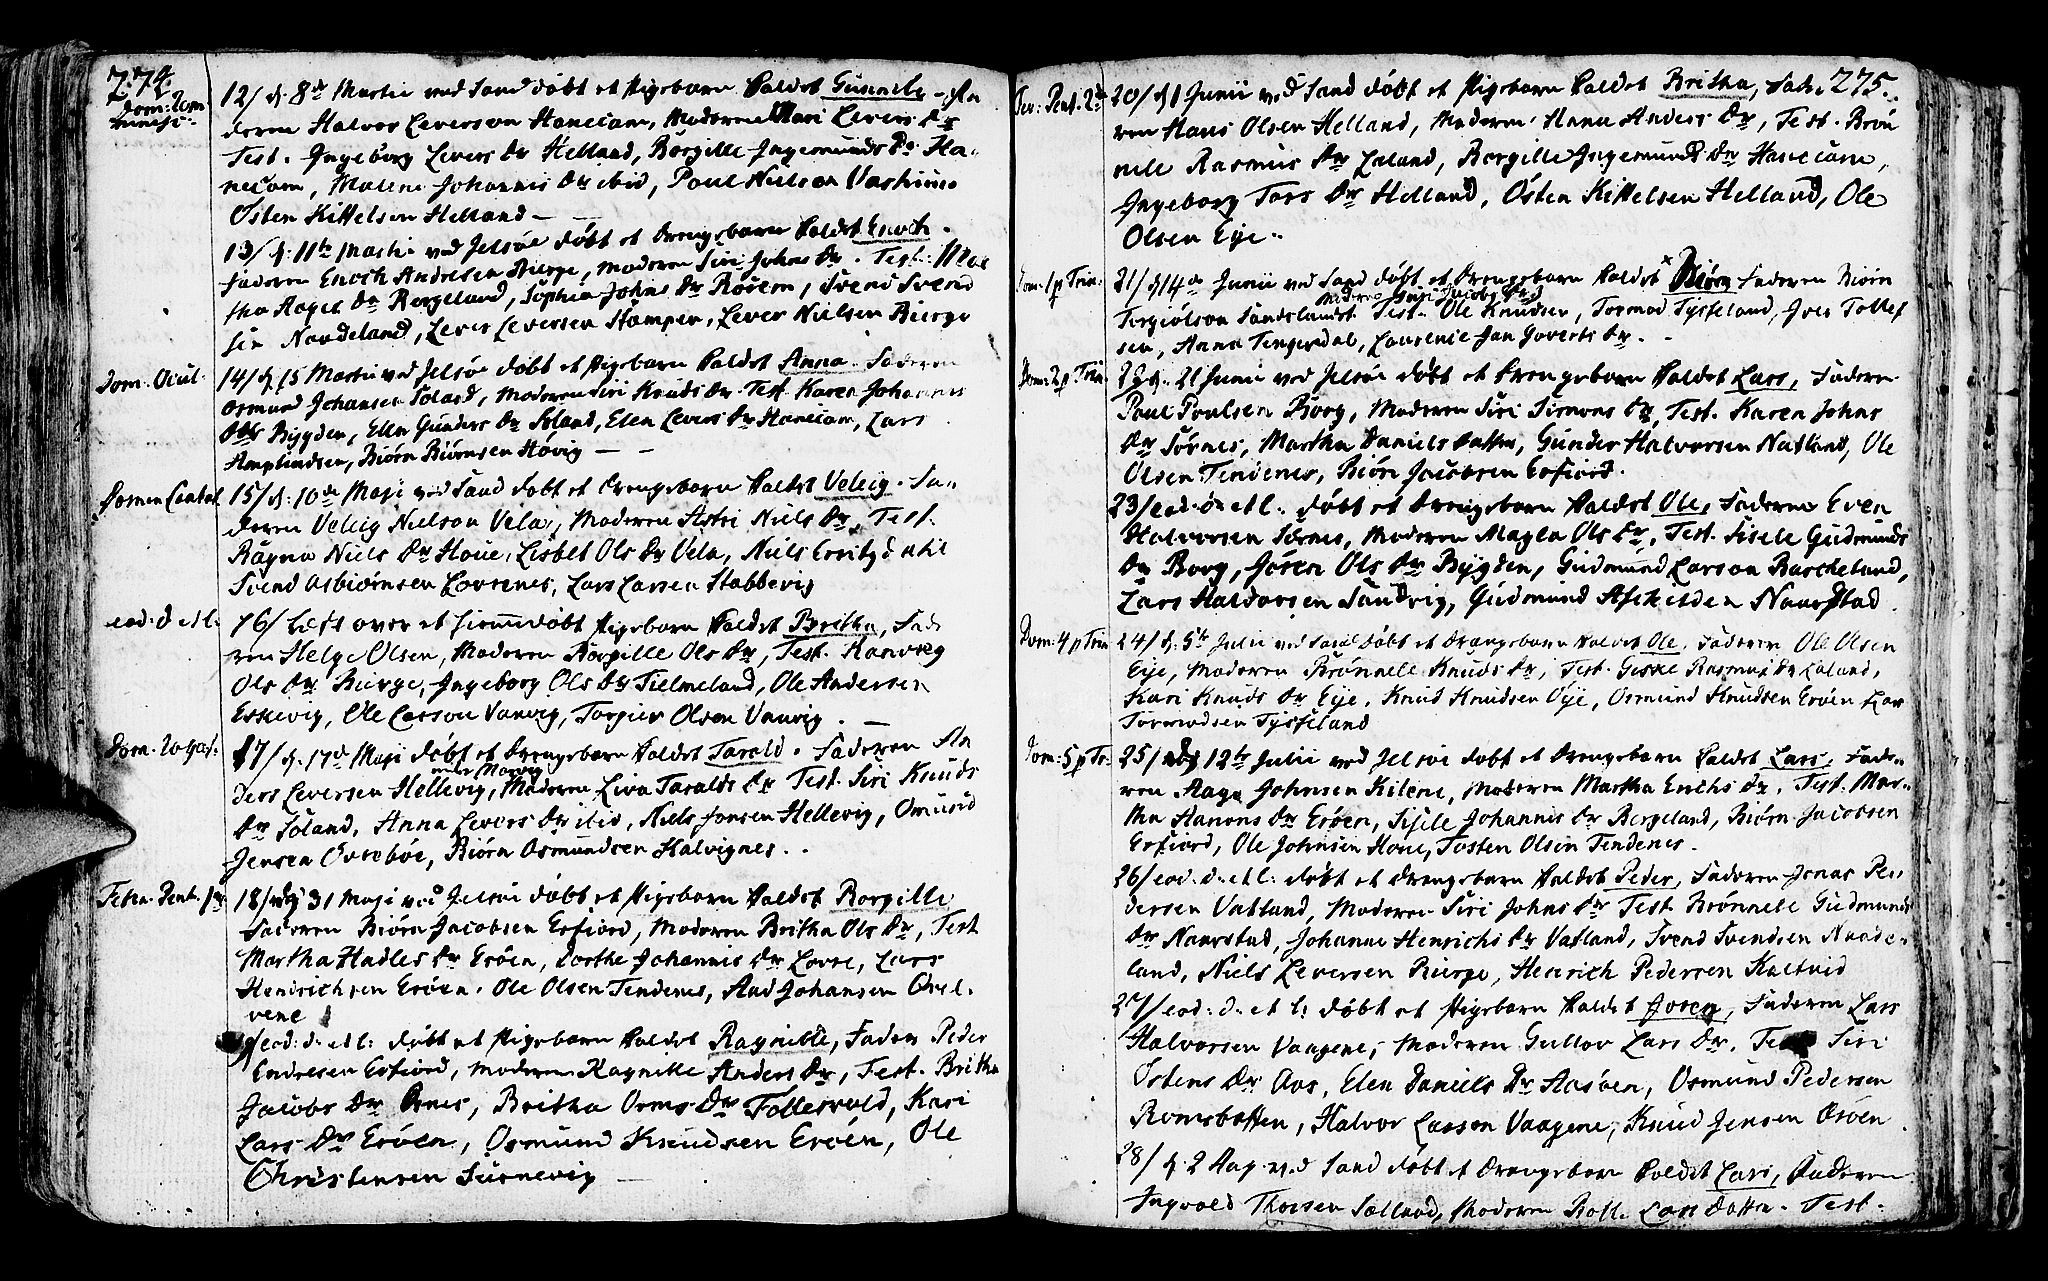 274.
Dom: Rem
12/ d. 8de Martii ved Sand døbt et Pigebarn kaldet Gunnele - Fa
deren Halvor Leversen Hanecam, Moderen Mari Levers Dr
Test. Ingeborg Levers Dr Helland, Borgille Ingemunds Dr Ha-
necam, Malene Johannis Dr ibid, Poul Nielsen
Østen Kittelsen Helland -
13/ d. 11te Martii ved Jelsøe døbt et Drengebarn kaldet Enoch.
Faderen Enoch Andresen Bierge, Moderen Siri Johns Dr. Test:
tha Aages Dr Bergeland, Sophia Johns Dr Rosem, Svend Svend
sen Naadeland, Lever Leversen Hompen, Lever Nielsen Bierge
Dom. Ocul.
14/ d. 15 Martii ved Jelsøe døbt et Pigebarn kaldet Anna. Faderen
Osmund Johansen Foland, Moderen Siri Knuds Dr Test. Karen Johannis
Dr Bygden, Ellen Gunders Dr Foland, Elen Levers Dr Hanecam, Lars
Amundsen, Biørn Biørnsen Høvig -
Domen Cantat
15/ d. 10de Maji ved Sand døbt et Drengebarn kaldet Vellug. Fa-
deren Vellug Nielsen Vela, Moderen Astri Niels Dr, Test.
Ragna Niels Dr Houe, Lisbet Ols Dr Vela, Niels
Svend Asbiørnsen Lovrenes, Lars Larsen Stabbevig
eod: d et l.
16/ Læst over et hiemmdøbt Pigebarn kaldet Britha, Fade
ren Helge Olsen, Moderen Borgille Ols Dr, Test. Ranveg
Ols Dr Bierge, Ingeborg Ols Dr Tielmeland, Ole Andersen
Eskevig, Ole Larsen Vanvig, Torgier Olsen Vanvig. -
Dom. Rogat.
17/ d. 17de Maji døbt et Drengebarn kaldet Tarald. Faderen An
ders Leversen Hellevig, Moderen Liva Taralds Dr Test. Siri Knuds
Dr Foland, Anna Levers Dr ibid, Niels Jonsen Hellevig, Osmund
Jensen Ovrebøe, Biørn Osmundsen Halvignes.
Feria. Pent. 1
18/ 31 Maji ved Jelsøe døbt et Pigebarn kaldet Borgille
Faderen Biørn Jacobsen Erfiord, Moderen Britha Ols Dr, Test
Martha Hadles Dr Erøen, Dorthe Johannis Dr Lovre, Lars
Hendrichsen Erøen. Ole Olsen Tendenes, Aad Johansen Qvel-
vene
19/ eod: d: et l: døbt et Pigebarn kaldet Ragnilde, Fader Peder
Endresen Erfiord, Moderen Ragnille Anders Dr, Test. Britha
Jacobs Dr Ornes, Britha Orms Dr Follesvold, Kari
Lars Dr Erøen, Osmund Knudsen Erøen, Ole
Christensen
275.
Fer: Pent. 2
20/ d 1 Junii ved Sand døbt et Pigebarn kaldet Britha, Fade
ren Hans Olsen Helland, Moderen Hana Anders Dr, Test. Brøn
nele Rasmus Dr Laland, Borgille Ingemunds Dr Hanecam,
Ingeborg Tors Dr Helland, Østen Kittelsen Helland, Ole
Olsen Eye.
Dom: 1 p Trin:
21/ d 14de Junii ved Sand døbt et Drengebarn kaldet Biørn Faderen Biørn
Moderen Guri Jacobs Dr
Torgiølsen Sandslandet Test. Ole Knudsen, Tormod Tysseland, Iver Tollef
sen, Anna Tengesdal, Laurenie Jan Goverts Dr.
Dom: 2 p Trin
22 d. 21 Junii ved Jelsøe døbt et Drengebarn kaldet Lars, Faderen
Paul Poulsen Borg, Moderen Siri Simons Dr, Test. Karen Johns
Dr Sørnes, Martha Daniels Datter, Gunder Halvorsen Natland, Ole
Olsen Tendenes, Biørn Jacobsen Erfiord.
23/ eod. d: et l: døbt et Drengebarn kaldet Ole, Faderen Even
Halvorsen Sørnes, Moderen Magla Ols Dr, Test. Sisele Gudmunds
Dr Borg, Joren Ols Dr Bygden, Gudmund Larsen Barcheland,
Lars Haldorsen Sandvig, Gudmund Naarstad.
Dom: 4 p Trin
24/ d. 5te Julii ved Sand døbt et Drengebarn kaldet Ole. Faderen Ole Olsen
Eije, Moderen Brønnele Knuds Dr, Test. Geske Rasmus Dr Laland,
Kari Knuds Dr Eije. Knud Knudsen Eye, Osmund Knudsen Erøen Lars
Tormodsen Tysseland
Dom: 5 p Tr:
25/ 12te Julii ved Jelsøe døbt et Drengebarn kaldet Lars, Fade-
ren Aage Johnsen Kilene, Moderen Martha Enochs Dr. Test. Mar-
tha Hanons Dr Erøen, Sisele Johannis Dr Bergeland, Biørn Jacobsen
Erfiord, Ole Johnsen Houe, Tosten Olsen Tendenes.
26/ eod. d. et l: døbt et Drengebarn kaldet Peder, Faderen Jonas Pe-
dersen Vatland, Moderen Siri Johns Dr Test. Brønnele Gudmunds
Dr Naarstad, Johanne Henrichs Dr Vatland, Svend Svendsen Naade-
land, Niels Leversen Bierge, Henrich Pedersen Kaltveid
27/ eod: d: et l: døbt et Pigebarn kaldet Joren, Faderen Lars
Halvorsen Vaagene, Moderen Gullov Lars Dr, Test Siri
Østens Dr Aas, Elen Daniels Dr Aasøen, Osmund Pedersen
Romsbotten, Halvor Larsen Vaagene, Knud Jensen Osøen
28/ d. 2 Aug ved Sand døbt et Drengebarn kaldet Lars, Faderen
Ingvold Thorsen Sælland, Moderen Lars Datter. Test.